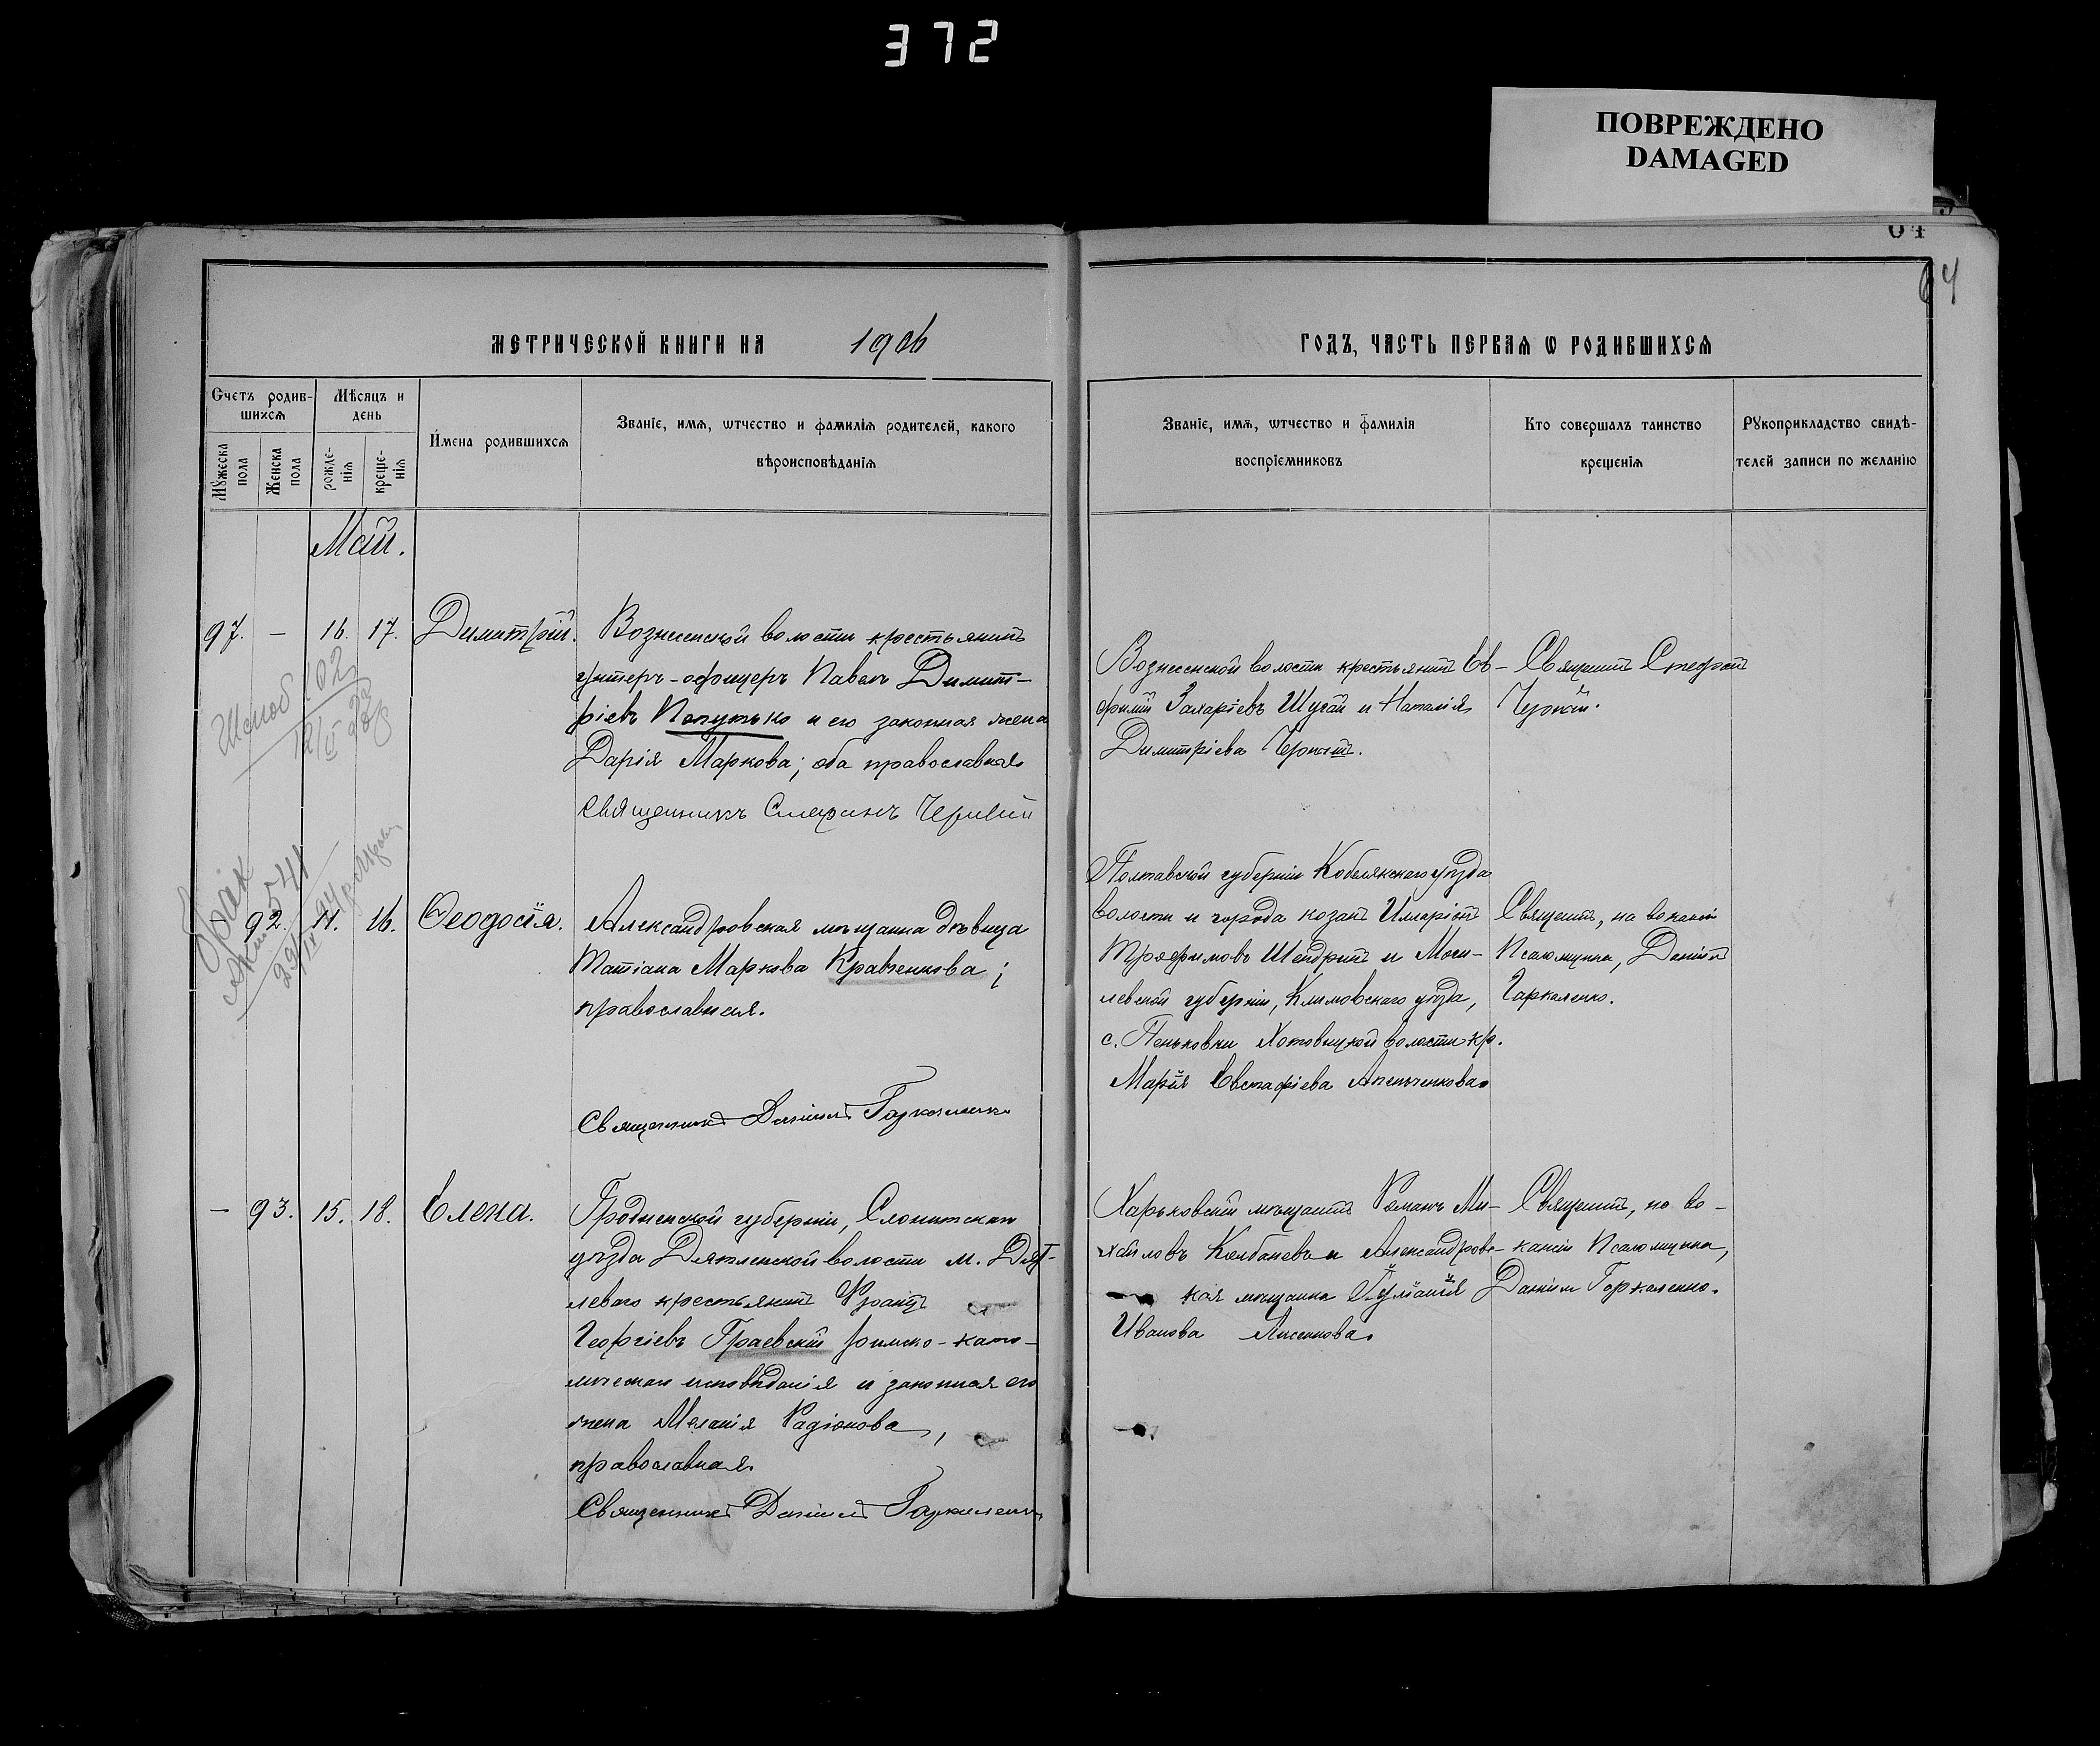 372
ПОВРЕЖДЕНО
DAMAGED
64
МЕТРИЧЕСКОЙ КНИГИ НА 1906
ГОДЪ, ЧАСТЬ ПЕРВАЯ Ѡ РОДИВШИХСЯ
Счетъ родив-
шихся
Мѣсяцъ и
день
Имена родившихся
Званіе, имя, ѡтчество и фамилія родителей, какого
вѣроисповѣданія
Мужеска
пола
Женска
пола
рожде-
нія
креще-
нія
Званіе, имя, ѡтчество и фамилія
воспріемниковъ
Кто совершалъ таинство
крещенія
Рукоприкладство свидѣ-
телей записи по желанію
Май.
97. — 16. 17. Димитрій.
Вознесенской волости крестьянинъ
унтеръ-офицеръ Павелъ Димит-
ріевъ Попутько и его законная жена
Дарія Маркова; оба православные
Священникъ Стефанъ Черный
Вознесенской волости крестьянинъ Ев-
фимій Захаріевъ Шугай и Наталія
Димитріева
Священникъ Стефанъ
102
Бракъ
541
92. 11. 16. Ѳеодосія.
Александровская мѣщанка дѣвица
Татіана Маркова Кравченкова;
православная.
Священникъ Даніилъ Гаркаленко
Полтавской губерніи Кобелякскаго уѣзда
волости и города козакъ Иларіонъ
Трофимовъ и Моги-
левской губерніи, Климовскаго уѣзда,
с. Пеньковки Хотовицкой волости кр.
Марія Евстафіева
Священникъ, на вакансіи
Псаломщика, Даніилъ
Гаркаленко.
— 93. 15. 18. Елена.
Гродненской губерніи, Слонимскаго
уѣзда Дятленской волости м. Дят-
лево крестьянинъ Францъ
Георгіевъ Граевскій римско-като-
лическаго исповѣданія и законная его
жена Меланія Радіонова,
православная.
Священникъ Даніилъ Гаркаленко
Харьковскій мѣщанинъ Романъ Ми-
хайловъ Колбаневъ и Александровс-
кая мѣщанка Іуліанія
Иванова Лысенкова.
Священникъ, на ва-
кансіи Псаломщика,
Даніилъ Гаркаленко.